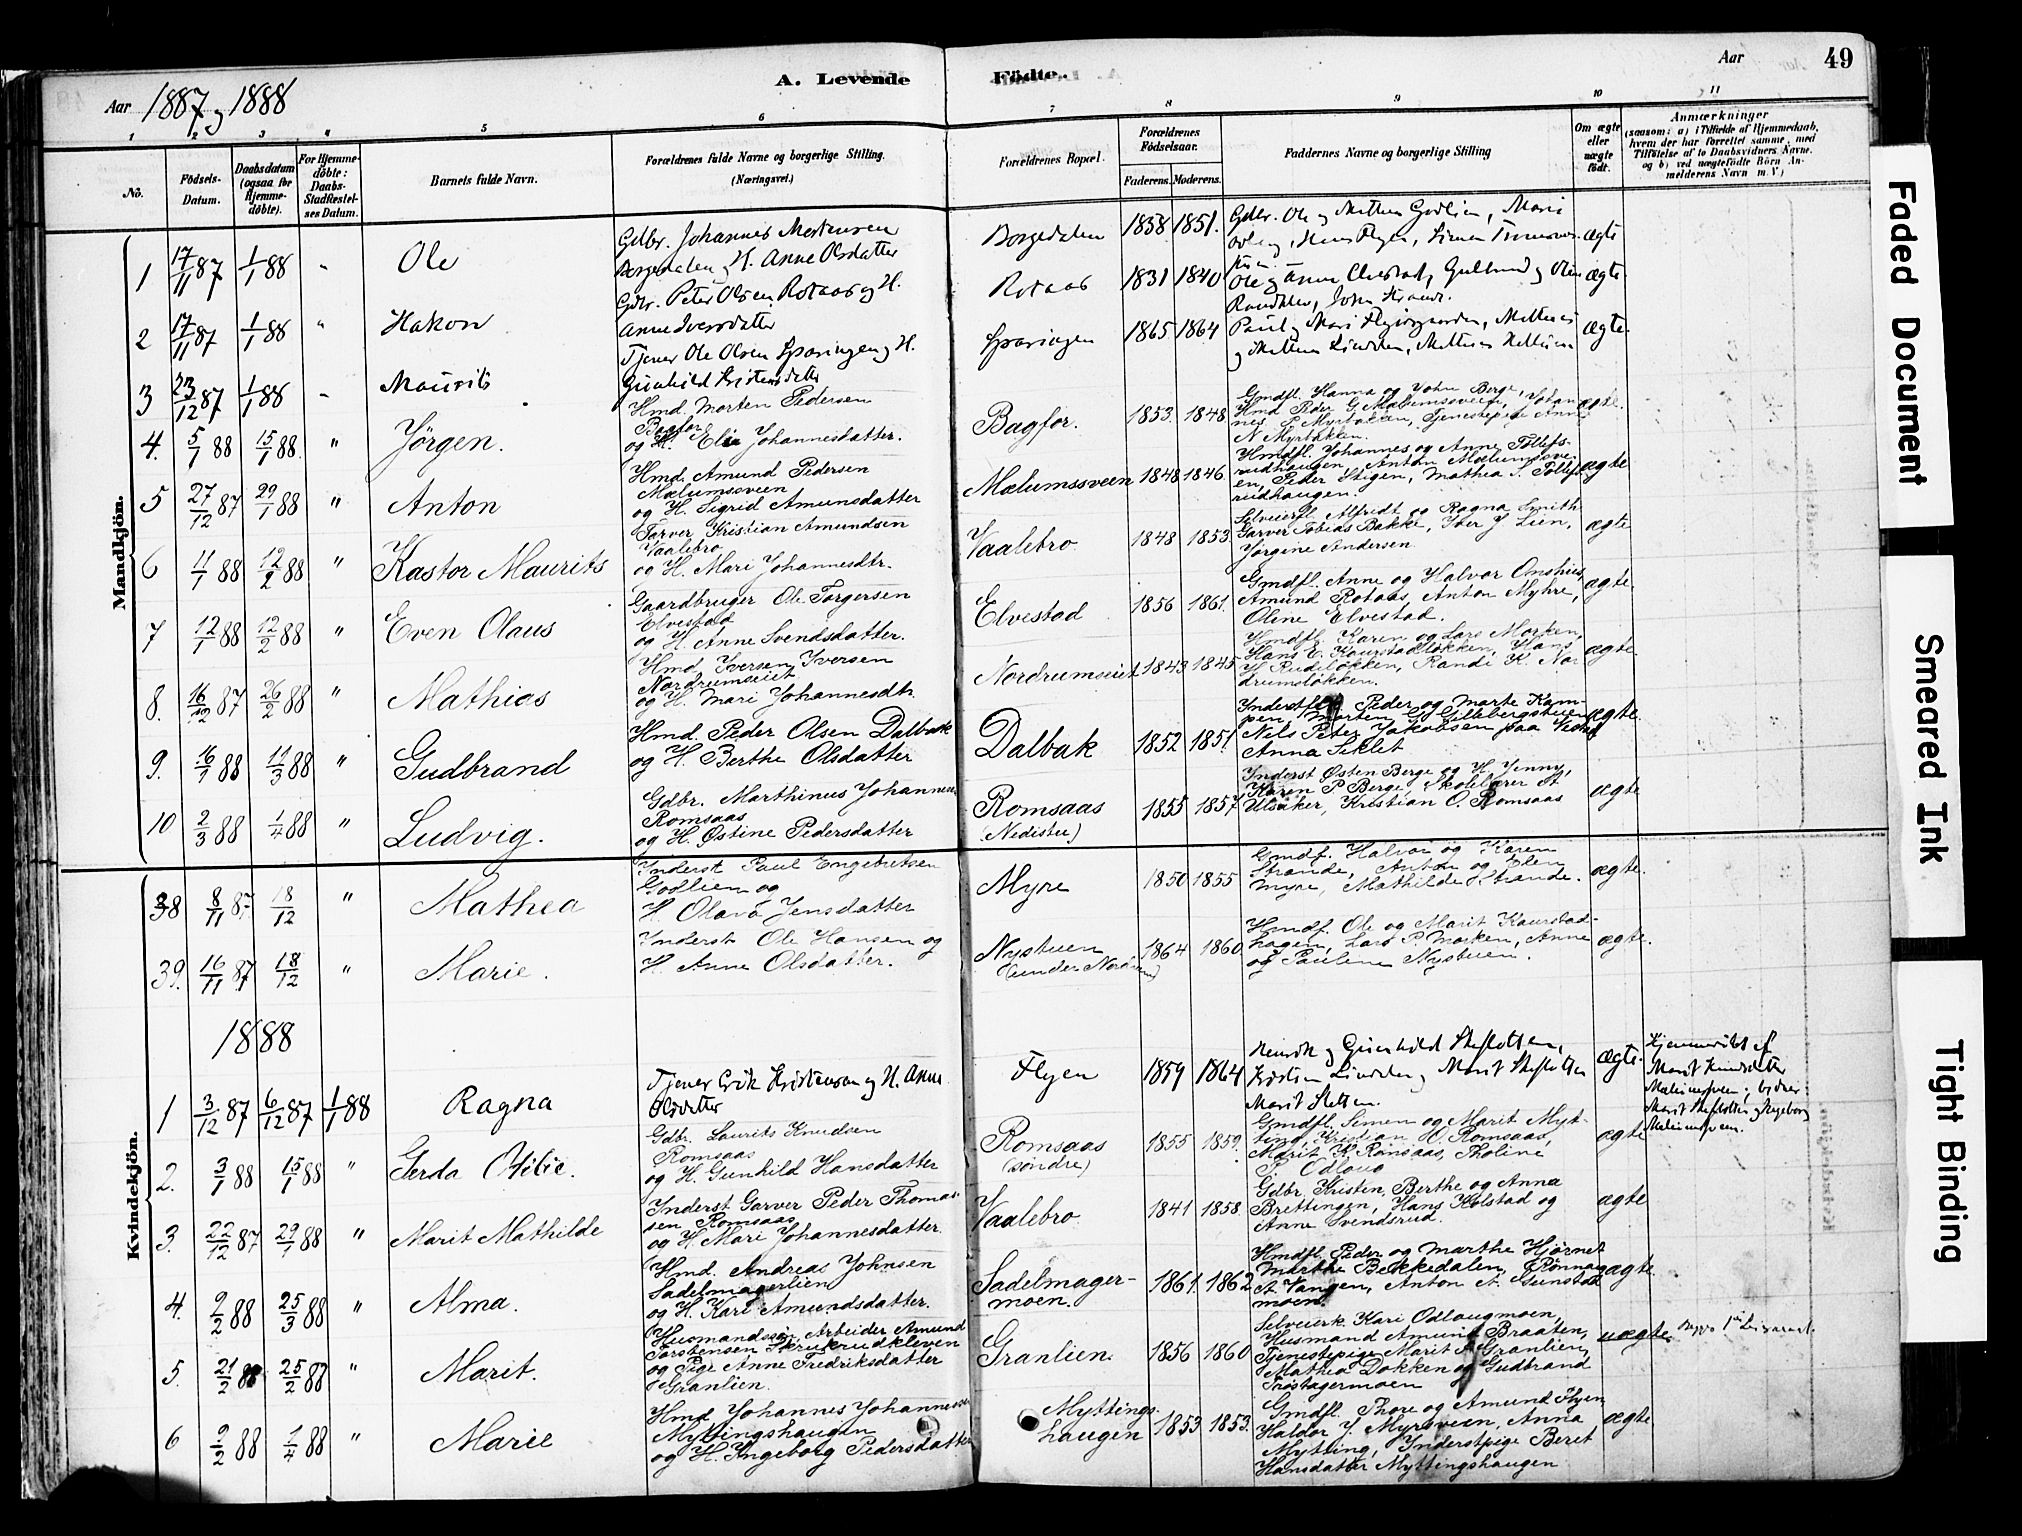 Aar 1887 og 1888
A. Levende Födte.
Aar
49
1 2 3 4 5 6 7 8 9 10 11
No.
Födsels-Datum.
Daabsdatum (ogsaa for Hjemme-döbte).
For Hjemme-döbte: Daabs-Stadfæstel-ses Datum.
Barnets fulde Navn.
Forældrenes fulde Navne og borgerlige Stilling. (Næringsvei.)
Forældrenes Bopæl.
Forældrenes Födselsaar.
Faderens. Moderens.
Faddernes Navne og borgerlige Stilling
Om ægte eller uægte födt.
Anmærkninger
(saasom: a) i Tilfælde af Hjemmedaab, hvem der har forrettet samme, med Tilföielse af to Daabsvidners Navne, og b) ved uægtefödte Börn An-melderens Navn m. V.)
Mandkjön.
1 17/11 87 1/1 88 " Ole
Gdbr. Johannes Mortensen
Borgedalen og H. Anne Olsdatter
Borgedalen 1838 1851.
Gdbr. Ole og Mathea Godlien, Mari
ægte
2 17/11 87 1/1 88 " Hakon
Gdbr. Peter Olsen Rotaas og H.
Anne Iversdatter
Rotaas 1831 1840
ægte
3 23/12 87 1/1 88 " Maurits
Tjener Ole Olsen Sparingen og H.
Gunhild Kristensdatter
Sparingen 1865 1864
ægte
4. 5/1 88 15/1 88. " Jörgen.
Hmd. Morten Pedersen
Bagfor
og H. Elie Johannesdatter.
Bagfor. 1853. 1848
Gmdfl. Hanna og John Berge,
Hmd Peder G. Mælumssveen, Johan-
nes P Myrbakken, Tjenestepige Anne
N Myrbakken.
ægte.
5 27/12 87 29/1 88 " Anton
Hmd. Amund Pedersen
Mælumssveen
og H. Sigrid Amunsdatter
Mælumssveen 1848 1846
Hmdfl. Johannes og Anne Tollefs-
rudhaugen, Anton Mælumssve-
en, Peder Stigen, Mathea S. Tollefs-
rudhaugen.
ægte
6 11/1 88 12/2 88 " Kastor Maurits
Farver Kristian Amundsen
Vaalebro
og H. Mari Johannesdtr.
Vaalebro 1848 1853
Selveierfl. Alfredt og Ragna Smith
Garver Tobias Bakke, Iver J Lien,
Jörgine Andersen
ægte
7 12/1 88 12/2 88 " Even Olaus
Gaardbruger Ole Torgersen
Elvestad
og H. Anne Svendsdatter.
Elvestad 1856 1861.
Gmdfl. Anne og Halvor Onshus,
Amund Rotaas, Anton Myhre,
Oline Elvestad.
ægte.
8. 16/12 87 26/2 88 " Mathias
Hmd. Iversen Iversen
Nordrumseiet
og H. Mari Johannesdtr.
Nordrumseiet 1843 1845
Hmdfl. Karen og Lars Morken,
Hans E. Kaurstadløkken, Hans
H Rudsløkken, Randi K. Nor
drumsløkken.
ægte.
9. 16/1 88 11/3 88 " Gudbrand
Hmd. Peder Olsen Dalbak
og H. Berthe Olsdatter
Dalbak 1852 1851.
Inderstfl Peder og Marte Kam-
pen, Morten G Gillebergstuen
Nels Peter Jakobsen paa
Anna Seklet
ægte.
10 2/3 88 1/4 88 " Ludvig.
Gdbr. Marthinus Johannes
Romsaas
og H. Østine Pedersdatter
Romsaas
(Nedistu) 1855 1857
Inderst Østen Berge og H. Jenny,
Karen P Berge, Skolelærer A
Ulsaker, Kristian O. Romsaas
ægte
Kvindekjön.
38 8/11 87 18/12 " Mathea
Inderst Paul Engebretsen
Godlien og
H. Olava Jensdatter
Myre 1850 1855
Gmdf. Halvor og Karen
Strande, Anton og Elen
Myre, Mathilde Strande.
ægte.
39. 16/11 87 18/12 " Marie.
Inderst Ole Hansen og
H. Anne Olsdatter.
Nystuen
(under Nordrum) 1864 1860
Hmdf. Ole og Marit Kaurstad-
hagen, Lars P. Morken, Anne
og Pauline Nystuen.
ægte.
1888
1 3/12 87 6/12 87 1/1 88 Ragna
Tjener Erik Kristensen og H. Anne
Olsdatter
Flyen 1859 1864
Marit Sletten.
ægte.
Hjemmedöbt af
Marit Knudsdatter
2. 3/1 88 15/1 88 " Gerda Otilie.
Gdbr. Laurits Knudsen
Romsaas
og H. Gunhild Hansdatter
Romsaas
(søndre) 1855 1859.
Gmdfl. Simen og Marit Myt-
ting, Kristian H. Romsaas,
Marit K Romsaas, Tholine
P. Odloug
ægte
3. 22/12 87. 29/1 88 " Marit Mathilde
Inderst Garver Peder Thomas-
sen Romsaas
og H. Mari Johannesdatter.
Vaalebro 1841 1858.
Gdbr. Kristen, Berthe og Anna
Brettingen, Hans Kolstad og
Anne Svendsrud.
ægte
4. 9/2 88 25/3 88 " Alma.
Hmd. Andreas Johnsen
Sadelmagerlien
og H. Kari Amundsdatter.
Sadelmager-
moen. 1861. 1862
Hmdfl. Peder og Marthe Hjørnet
Marthe Bekkedalen, Rønnaug
A Vangen, Anton A. Sunstad
moen.
ægte.
5. 21/2 88 25/2 88 " Marit.
Husmandssøn, Arbeider Amund
Torstensen Skrukrudkleven
og Pige Anne Fredriksdatter
Granlien.
Granlien 1856 1860
Selveierk. Kari Odlougmoen,
Husmand Amund Braaten,
Tjenestepige Marit A Granlien,
Mathea Dokken og Gudbrand
Trøstagermoen
uægte.
6 9/2 88 1/4 88 " Marie
Hmd. Johannes Johannessen
Myttingshaugen
og H. Ingeborg Pedersdatter
Myttings-
haugen 1853 1853.
Gmdfl. Thore og Amund Flyen
Haldor J. Myrsveen, Anna
Mytting, Inderstpige Beret
Hansdatter Myttingshaugen
ægte
Faded Document
Smeared Ink
Tight Binding